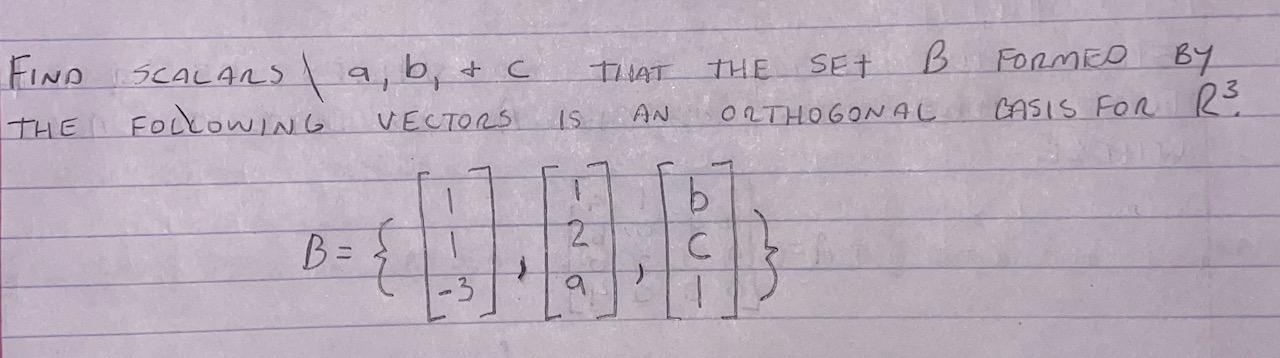 FIND SCALARS \ a, b, + c THAT THE SET B FORMED BY
THE FOLLOWING VECTORS IS AN ORTHOGONAL BASIS FOR R³.
B = { [1 1 -3], [1 2 a], [b c 1] }